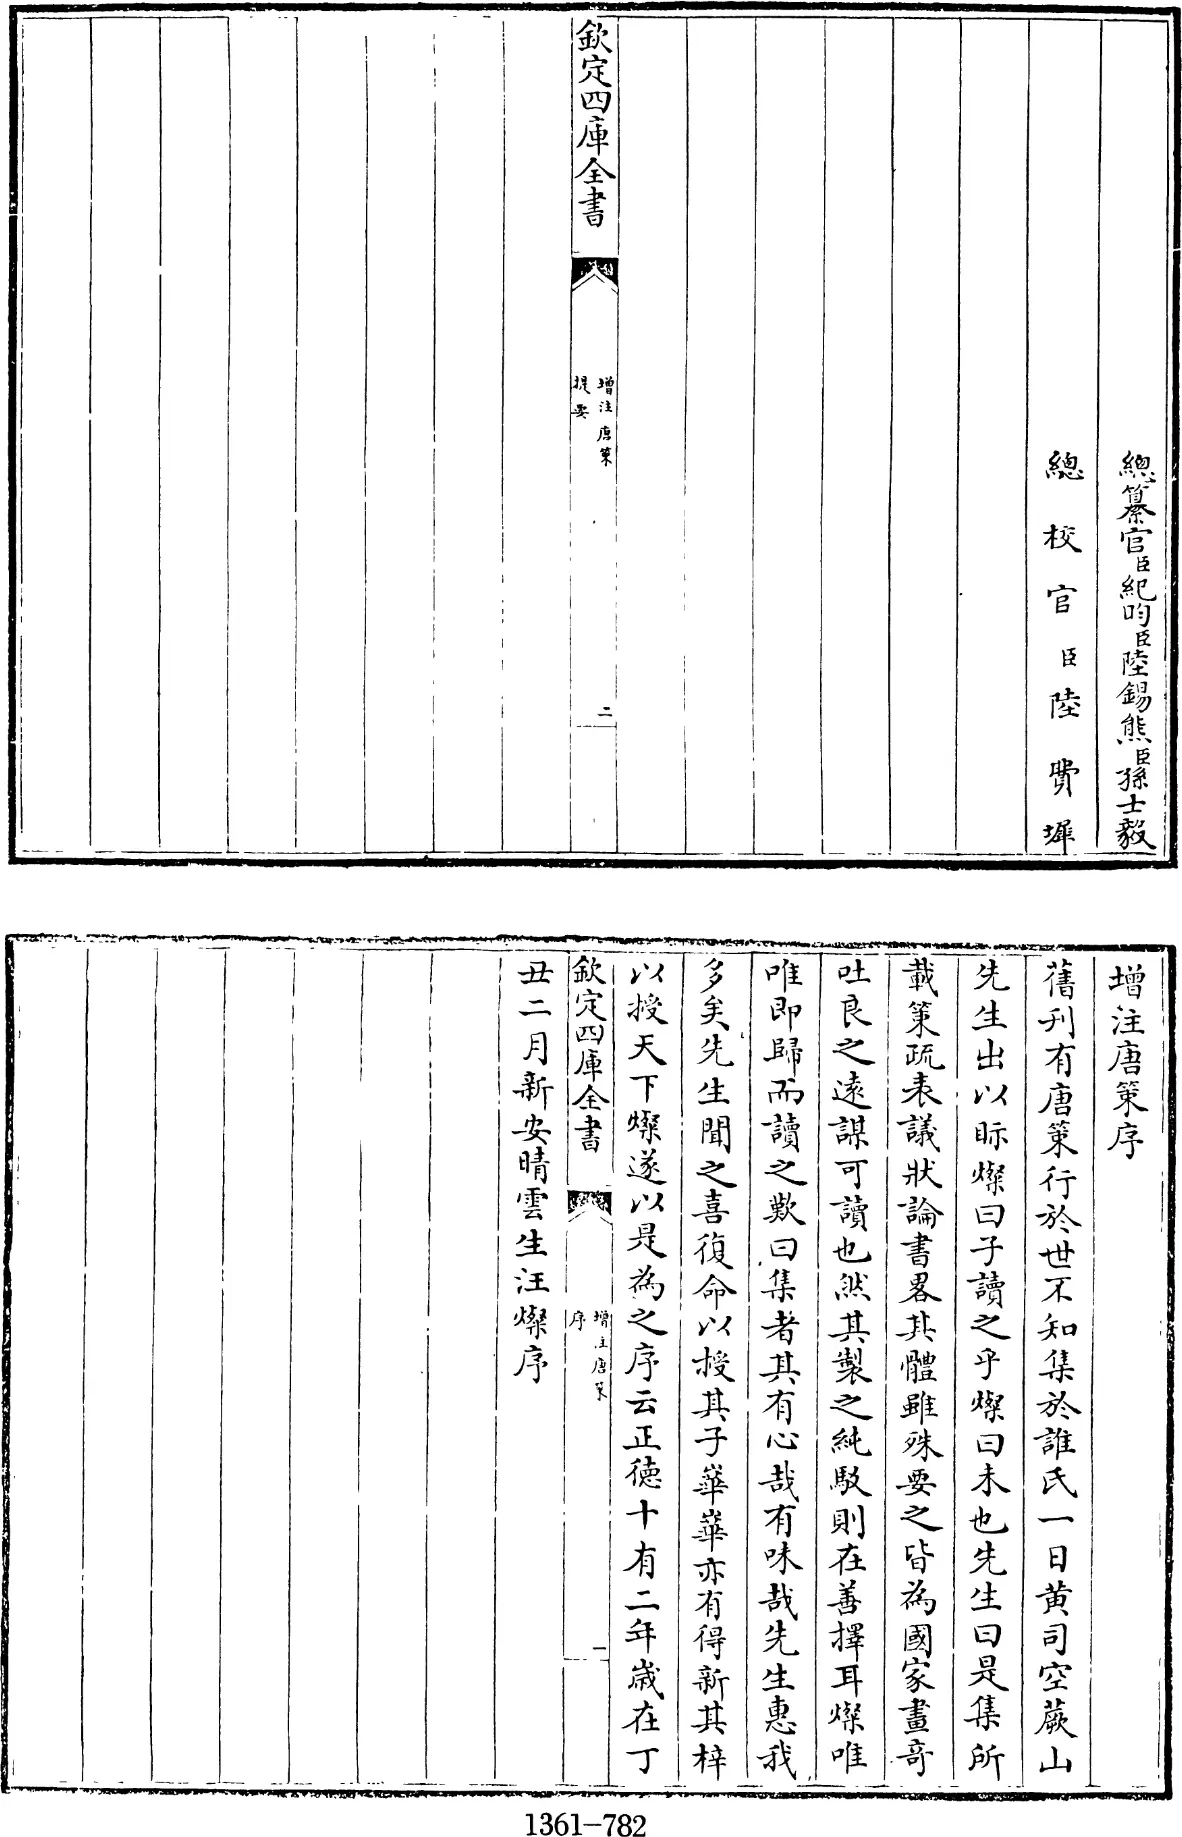 總纂官臣紀昀臣陸錫熊臣孫士毅
總校官臣陸費墀
欽定四庫全書
增注唐策
提要
二
增注唐策序
舊刊有唐策行於世不知集於誰氏一日黄司空蕨山
先生出以眎燦曰子讀之乎燦曰未也先生曰是集所
載策疏表議狀論書畧其體雖殊要之皆為國家畫竒
吐良之遠謀可讀也然其製之純駁則在善擇耳燦唯
唯即歸而讀之歎曰集者其有心哉有味哉先生惠我
多矣先生聞之喜復命以授其子崋崋亦有得新其梓
以授天下燦遂以是為之序云正德十有二年歲在丁
欽定四庫全書
增注唐策
序
一
丑二月新安晴雲生汪燦序
1361-782